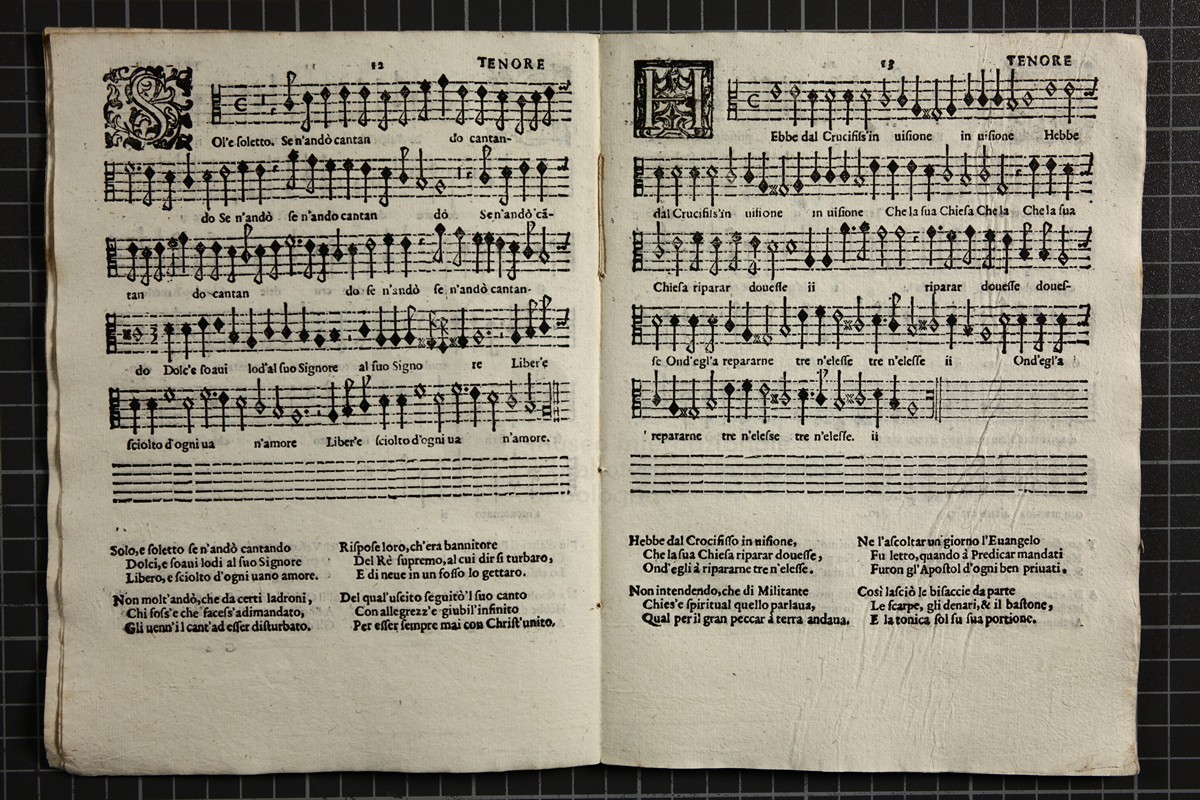 12 TENORE
SOl'e soletto. Se n'andò cantan do cantan-
do Se n'andò se n'ando cantan dò Se n'andò cā-
tan do cantan do se n'andò se n'andò cantan-
do Dolc'e soaui lod'al suo Signore al suo Signo re Liber'e
sciolto d'ogni ua n'amore Liber'e sciolto d'ogni ua n'amore.
Solo, e soletto se n'andò cantando
Dolci, e soaui lodi al suo Signore
Libero, e sciolto d'ogni uano amore.
Non molt'andò, che da certi ladroni,
Chi foss'e che facess'adimandato,
Gli uenn'il cant'ad esser disturbato.
Rispose loro, ch'era bannitore
Del Rè supremo, al cui dir si turbaro,
E di neue in un fosso lo gettaro.
Del qual'uscito seguitò'l suo canto
Con allegrezz'e giubil'infinito
Per esser sempre mai con Christ'unito.
13 TENORE
HEbbe dal Crucifiss'in uisione in uisione Hebbe
dal Crucifiss'in uisione in uisione Che la sua Chiesa Che la Che la sua
Chiesa riparar douesse ii riparar douesse doues-
se Ond'egl'a repararne tre n'elesse tre n'elesse ii Ond'egl'a
repararne tre n'elesse tre n'elesse. ii
Hebbe dal Crocifisso in uisione,
Che la sua Chiesa riparar douesse,
Ond'egli à ripararne tre n'elesse.
Non intendendo, che di Militante
Chies'e spiritual quello parlaua,
Qual per il gran peccar à terra andaua.
Ne l'ascoltar un giorno l'Euangelo
Fu letto, quando à Predicar mandati
Furon gl'Apostol d'ogni ben priuati.
Così lasciò le bisaccie da parte
Le scarpe, gli denari, & il bastone,
E la tonica sol fu sua portione.